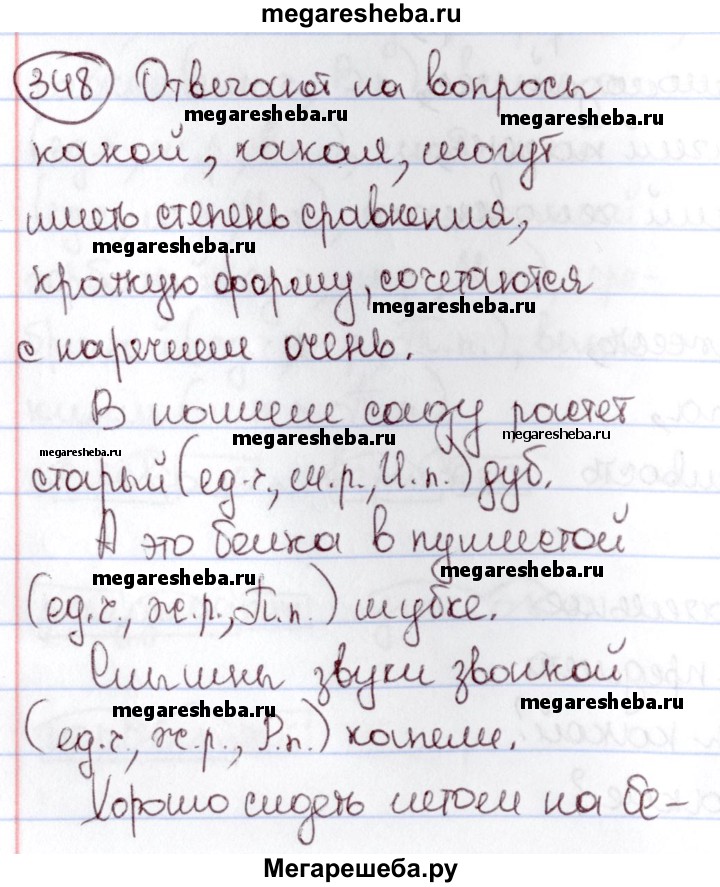 megaresheba.ru
348 Отвечают на вопросы
megaresheba.ru megaresheba.ru
какой, какая, могут
иметь степень сравнения,
megaresheba.ru
краткую форму, сочетаются
megaresheba.ru
с наречием очень.
В нашем саду растет
megaresheba.ru megaresheba.ru megaresheba.ru
старый (ед.ч., м.р., И.п.) дуб.
А это белка в пушистой
megaresheba.ru megaresheba.ru
(ед.ч., ж.р., П.п.) шубке.
Слышны звуки звонкой
megaresheba.ru megaresheba.ru
(ед.ч., ж.р., Р.п.) капели.
Хорошо сидеть летом на бе-
megaresheba.ru
Мегарешеба.ру